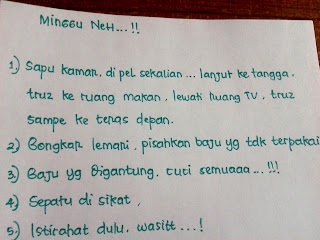 Minggu NeH...!!
1) Sapu kamar, di pel sekalian... lanjut ke tangga.
truz ke ruang makan, lewati ruang TV, truz
sampe ke teras depan.
2) Bongkar lemari, pisahkan baju yg tdk terpakai
3) Baju yg Digantung, cuci semuaaa...!!!
4) Sepatu di sikat,
5) Istirahat dulu, wasitt...!